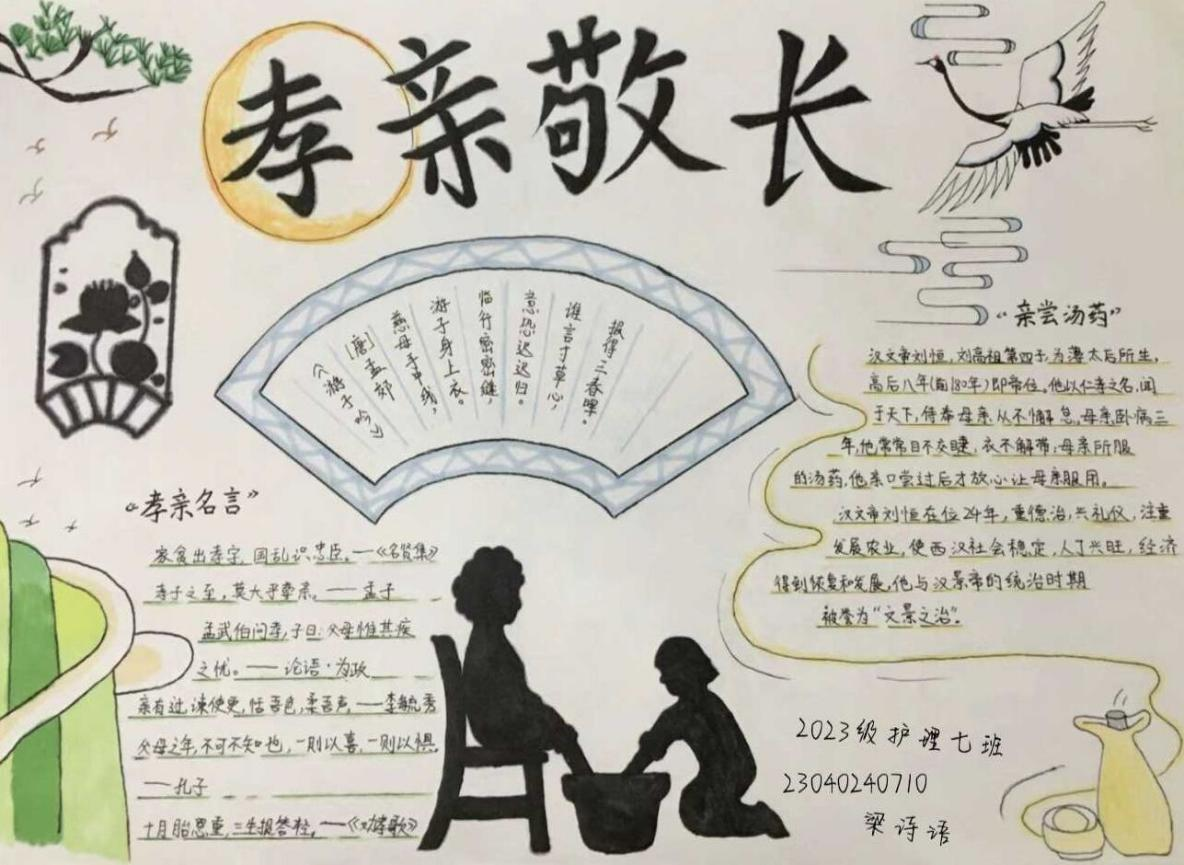 孝亲敬长
《游子吟》
[唐]孟郊
慈母手中线，
游子身上衣。
临行密密缝
意恐迟迟归。
谁言寸草心，
报得三春晖。
“孝亲名言”
家贫出孝字，国乱识忠臣。—《名贤集》
孝子之至，莫大乎尊亲。——孟子
孟武伯问孝，子曰：父母惟其疾
之忧。——论语·为政
亲有过，谏使更，怡吾色，柔吾声，——李毓秀
父母之年，不可不知也，一则以喜，一则以惧.
——孔子
十月胎恩重，三生报答轻，——《劝孝歌》
“亲尝汤药”
汉文帝刘恒，刘高祖第四子，为薄太后所生，
高后八年(前180年)即帝位。他以仁孝之名，闻
于天下，侍奉母亲从不懈怠。母亲卧病三
年，他常常目不交睫，衣不解带；母亲所服
的汤药，他亲口尝过后才放心让母亲服用。
汉文帝刘恒在位24年，重德治，兴礼仪，注重
发展农业，使西汉社会稳定，人丁兴旺，经济
得到恢复和发展，他与汉景帝的统治时期
被誉为“文景之治”。
2023级护理七班
23040240710
梁诗语